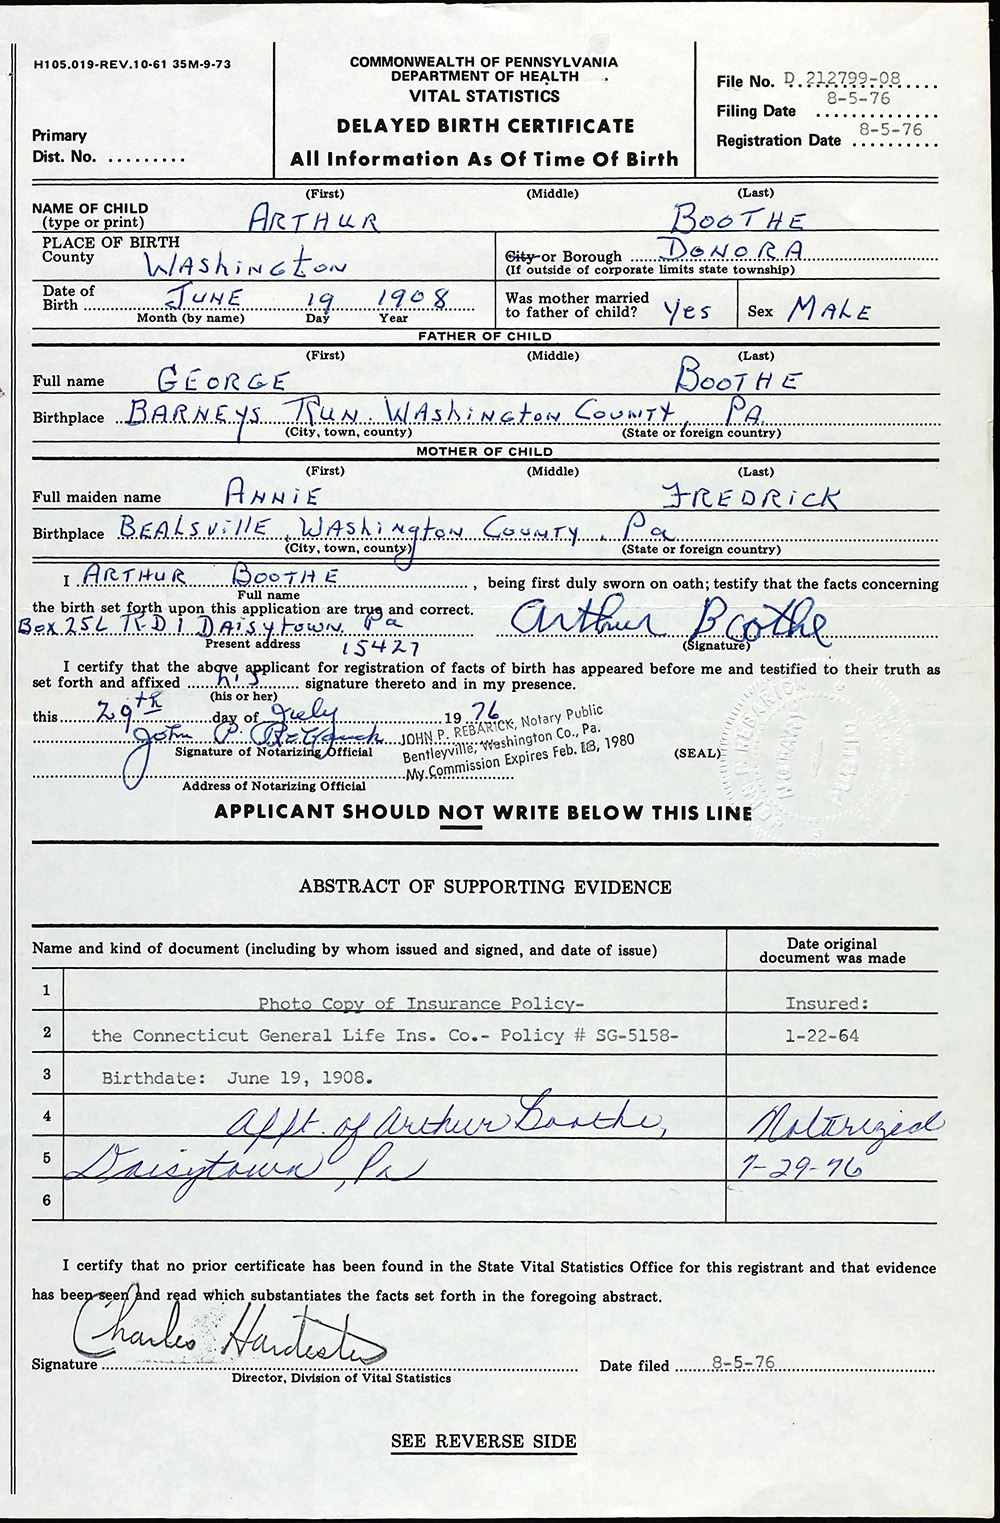 H105.019-REV.10-61 35M-9-73
COMMONWEALTH OF PENNSYLVANIA
DEPARTMENT OF HEALTH
VITAL STATISTICS
DELAYED BIRTH CERTIFICATE
All Information As Of Time Of Birth
Primary
Dist. No. .........
File No. D 212799-08
Filing Date 8-5-76
Registration Date 8-5-76
(First) (Middle) (Last)
NAME OF CHILD ARTHUR BOOTHE
(type or print)
PLACE OF BIRTH
County WAShiNGTON
City or Borough DONORA
(If outside of corporate limits state township)
Date of
Birth JUNE 19 1908
Month (by name) Day Year
Was mother married
to father of child? Yes
Sex MALE
FATHER OF CHILD
(First) (Middle) (Last)
Full name GEORGE BOOTHE
Birthplace BARNEYS RUN. WAShiNGTON COUNTY, PA.
(City, town, county) (State or foreign country)
MOTHER OF CHILD
(First) (Middle) (Last)
Full maiden name ANNiE FREDRiCK
Birthplace BEALSVillE, WAShiNgtON COUNTY, Pa
(City, town, county) (State or foreign country)
I ARTHUR BOOTHE , being first duly sworn on oath; testify that the facts concerning
Full name
the birth set forth upon this application are true and correct.
Box 25L R.D 1 DAiSYTOWN. Pa Arthur Boothe
Present address 15427 (Signature)
I certify that the above applicant for registration of facts of birth has appeared before me and testified to their truth as
set forth and affixed his signature thereto and in my presence.
(his or her)
this 29th day of July 1976
John P. Rebarick
Signature of Notarizing Official
JOHN P. REBARICK, Notary Public
Bentleyville, Washington Co., Pa.
My Commission Expires Feb. 13, 1980
(SEAL)
JOHN P. REBARICK
NOTARY
PUBLIC
Address of Notarizing Official
APPLICANT SHOULD NOT WRITE BELOW THIS LINE
ABSTRACT OF SUPPORTING EVIDENCE
Name and kind of document (including by whom issued and signed, and date of issue)
Date original
document was made
1 Photo Copy of Insurance Policy- Insured:
2 the Connecticut General Life Ins. Co.- Policy # SG-5158- 1-22-64
3 Birthdate: June 19, 1908.
4 Afft. of Arthur Boothe, Notarized
5 Daisytown, Pa 7-29-76
6
I certify that no prior certificate has been found in the State Vital Statistics Office for this registrant and that evidence
has been seen and read which substantiates the facts set forth in the foregoing abstract.
Charles Hardester
Signature Date filed 8-5-76
Director, Division of Vital Statistics
SEE REVERSE SIDE